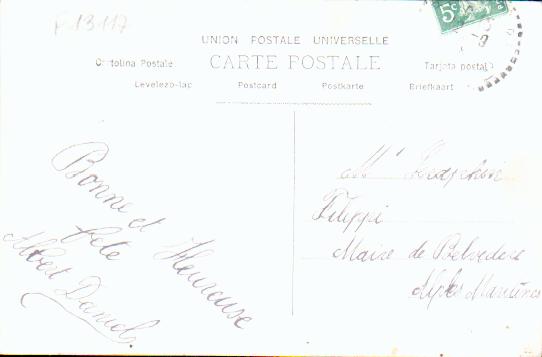 F-13117
5c
UNION POSTALE UNIVERSELLE
Cartolina Postale
CARTE POSTALE
Tarjeta postal
Levelezo-lap
Postcard
Postkarte
Briefkaart
Bonne et Heureuse
fête
Albert Daniel
Filippi
Maire de Belvédère
Alpes Maritimes